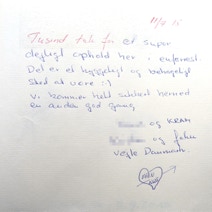 Tusind tak for et super
dejligt ophold her i enferest.
Det er et hyggeligt og behageligt
sted at være :)
Vi kommer helt sikkert herned
en anden god gang
og KRAM
og John
Vejle Danmark.